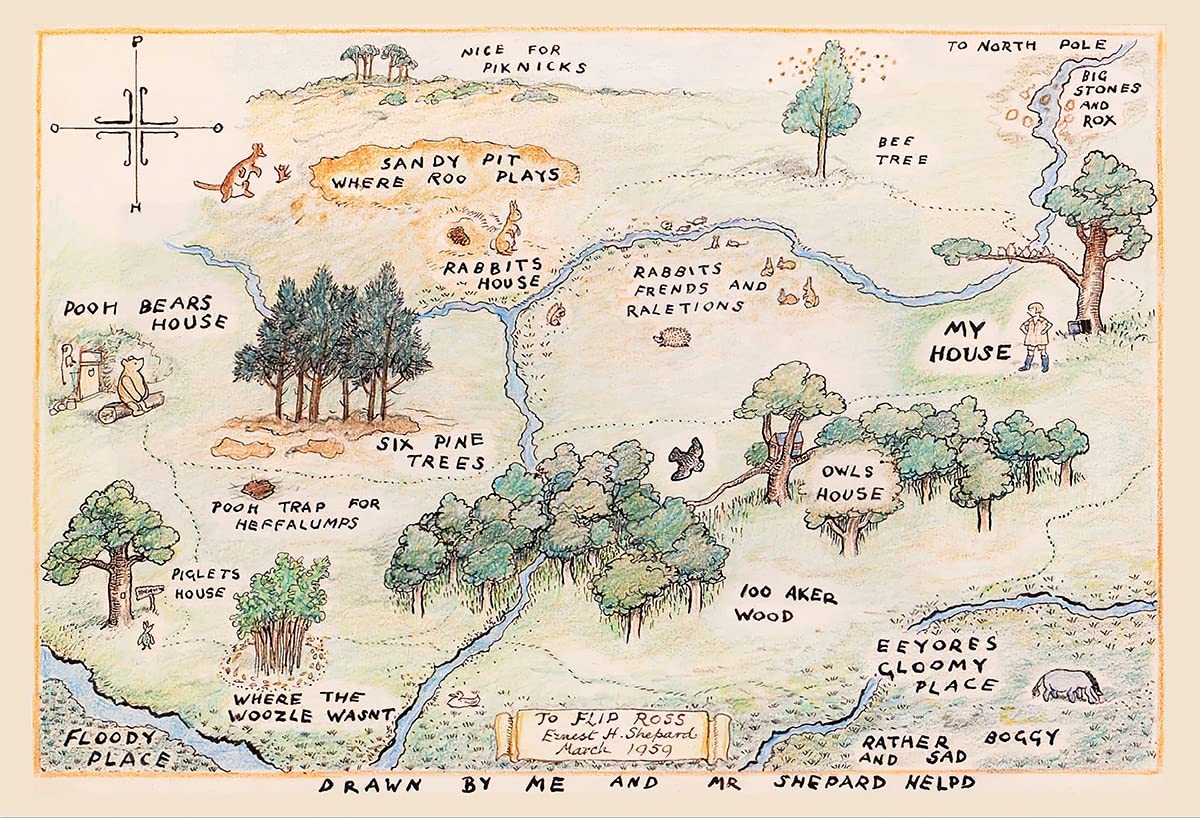 P
O
O
H
NICE FOR
PIKNICKS
TO NORTH POLE
BIG
STONES
AND
ROX
BEE
TREE
SANDY PIT
WHERE ROO PLAYS
RABBITS
HOUSE
RABBITS
FRENDS AND
RALETIONS
POOH BEARS
HOUSE
MY
HOUSE
SIX PINE
TREES
OWLS
HOUSE
POOH TRAP FOR
HEFFALUMPS
PIGLETS
HOUSE
100 AKER
WOOD
EEYORES
GLOOMY
PLACE
WHERE THE
WOOZLE WASNT
FLOODY
PLACE
TO FLIP ROSS
Ernest H. Shepard
March 1959
RATHER BOGGY
AND SAD
DRAWN BY ME AND MR SHEPARD HELPD